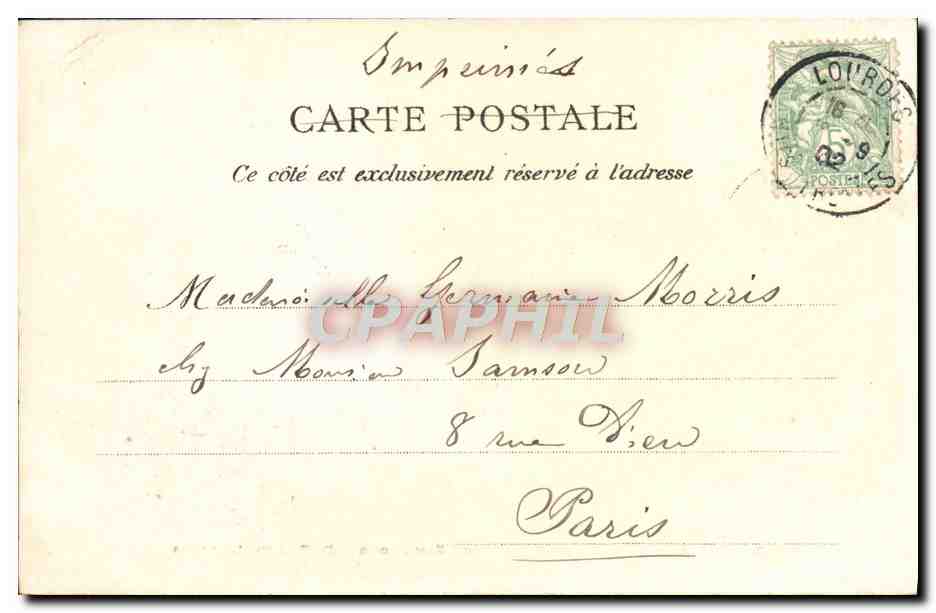 Imprimés
CARTE POSTALE
Ce côté est exclusivement réservé à l'adresse
LOURDES
5
POSTES
Mademoiselle Germaine Morris
CPAPHIL
chez Monsieur Samson
8 rue Dieu
Paris